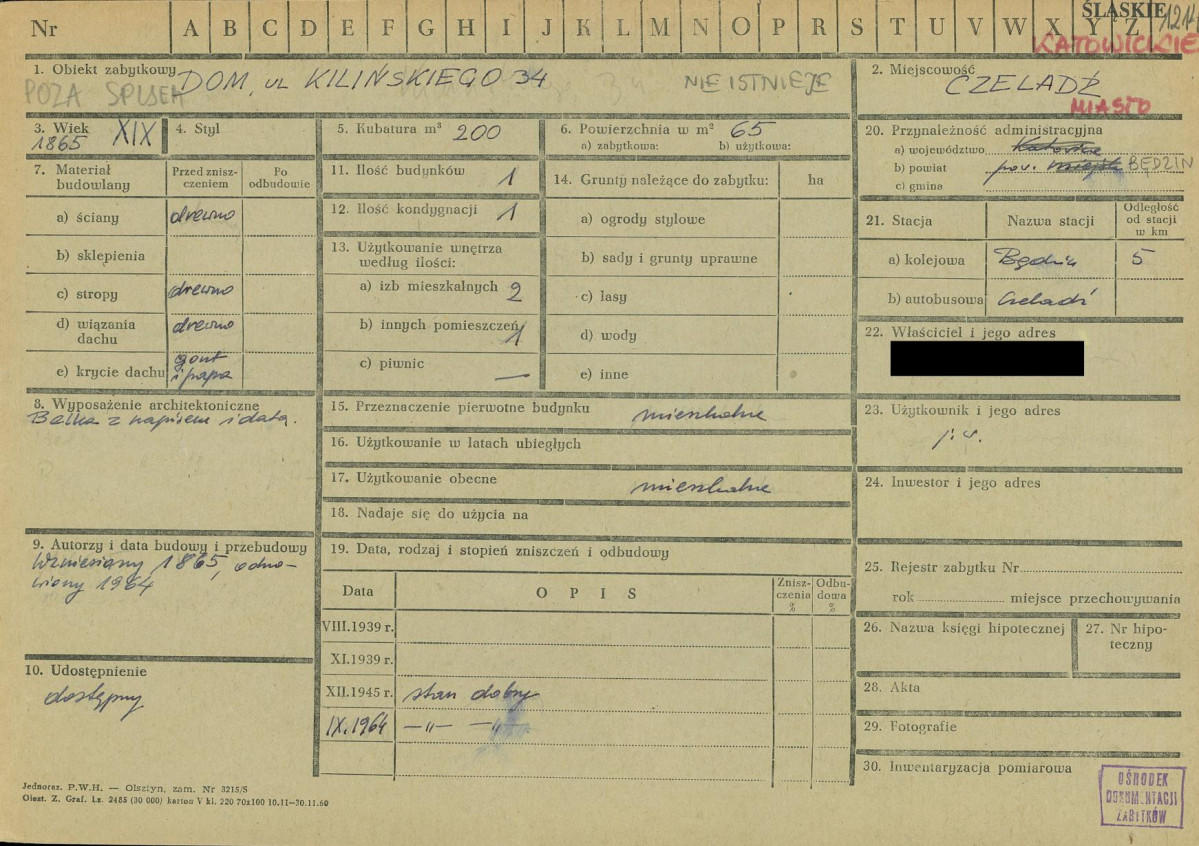 Nr A B C D E F G H I J K L M N O P R S T U V W X Y Z
ŚLĄSKIE
KATOWICKIE
1. Obiekt zabytkowy DOM, ul KILIŃSKIEGO 34 NIE ISTNIEJE
POZA SPISEM
2. Miejscowość CZELADŹ
MIASTO
3. Wiek 1865 XIX
4. Styl
5. Kubatura m³ 200
6. Powierzchnia w m² 65
a) zabytkowa: b) użytkowa:
7. Materiał budowlany
Przed znisz-
czeniem
Po
odbudowie
a) ściany drewno
b) sklepienia
c) stropy drewno
d) wiązania
dachu drewno
e) krycie dachu gont
i papa
8. Wyposażenie architektoniczne
Belka z napisem i datą.
9. Autorzy i data budowy i przebudowy
Wzniesiony 1865, odno-
wiony 1964
10. Udostępnienie
dostępny
11. Ilość budynków 1
12. Ilość kondygnacji 1
13. Użytkowanie wnętrza
według ilości:
a) izb mieszkalnych 2
b) innych pomieszczeń 1
c) piwnic —
14. Grunty należące do zabytku: ha
a) ogrody stylowe
b) sady i grunty uprawne
c) lasy
d) wody
e) inne
15. Przeznaczenie pierwotne budynku mieszkalne
16. Użytkowanie w latach ubiegłych
17. Użytkowanie obecne mieszkalne
18. Nadaje się do użycia na
19. Data, rodzaj i stopień zniszczeń i odbudowy
Data O P I S
Znisz-
czenia
%
Odbu-
dowa
%
VIII.1939 r.
XI.1939 r.
XII.1945 r. stan dobry
IX.1964 —„— —„—
20. Przynależność administracyjna
a) województwo
b) powiat pow. BĘDZIN
c) gmina
21. Stacja Nazwa stacji
Odległość
od stacji
w km
a) kolejowa Będzin 5
b) autobusowa Czeladź
22. Właściciel i jego adres
23. Użytkownik i jego adres
j.w.
24. Inwestor i jego adres
25. Rejestr zabytku Nr
rok miejsce przechowywania
26. Nazwa księgi hipotecznej
27. Nr hipo-
teczny
28. Akta
29. Fotografie
30. Inwentaryzacja pomiarowa
OŚRODEK
DOKUMENTACJI
ZABYTKÓW
Jednoraz. P.W.H. — Olsztyn, zam. Nr 3215/S
Olszt. Z. Graf. Lz. 2485 (30 000) karton V kl. 220 70x100 10.11—30.11.60